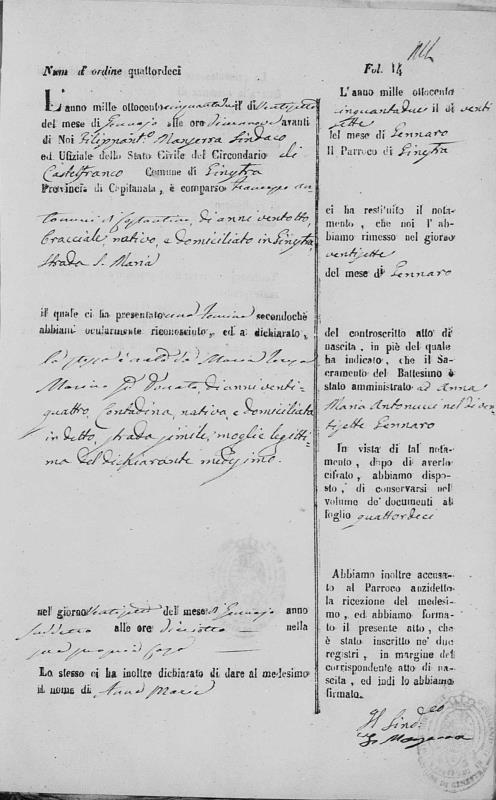 Num d' ordine quattordeci
L'anno mille ottocento cinquantadue il dì Ventisette
del mese di Gennajo alle ore avanti
di Noi Filippant.º Manserra Sindaco
ed Ufiziale dello Stato Civile del Circondario di
Castelfranco Comune di Ginestra
Provincia di Capitanata, è comparso Francesco An-
tonucci di Costantino, di anni ventotto,
bracciale, nativo, e domiciliato in Ginestra
strada S. Maria
il quale ci ha presentato una femina secondochè
abbiamo ocularmente riconosciuto, ed ha dichiarato,
la stessa è nata da Maria
Marino Donato, di anni venti-
quattro, Contadina, nativa, e domiciliata
in detto, strada simile, moglie legitti-
ma del dichiarante medesimo.
nel giorno Ventisette del mese di Gennajo anno
suddetto alle ore Diciotto nella
casa
Lo stesso ci ha inoltre dichiarato di dare al medesimo
il nome di Anna Maria
Fol. 14
L'anno mille ottocento
cinquantadue il dì venti
sette
del mese di Gennaro
Il Parroco di Ginestra
ci ha restituito il nota-
mento, che noi l'ab-
biamo rimesso nel giorno
ventisette
del mese di Gennaro
del controscritto atto di
nascita, in piè del quale
ha indicato, che il Sa-
cramento del Battesimo è
stato amministrato ad Anna
Maria Antonucci nel dì ven-
tisette Gennaro
In vista di tal nota-
mento, dopo di averlo
cifrato, abbiamo dispo-
sto, di conservarsi nel
volume de' documenti al
foglio quattordeci
Abbiamo inoltre accusa-
to al Parroco anzidetto
la ricezione del medesi-
mo, ed abbiamo forma-
to il presente atto, che
è stato inscritto ne' due
registri, in margine del
corrispondente atto di na-
scita, ed indi lo abbiamo
firmato.
Il Sind.co